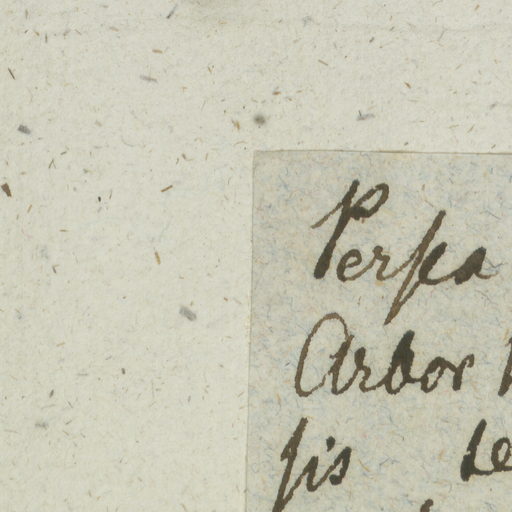 Persea
Arbor
sis se